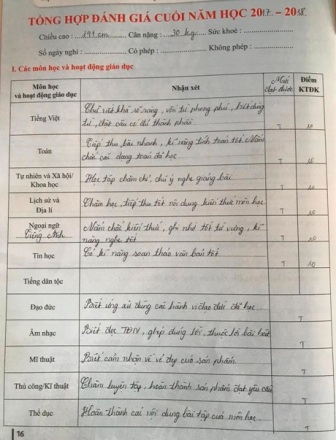 TỔNG HỢP ĐÁNH GIÁ CUỐI NĂM HỌC 2017 – 2018
Chiều cao : 141 cm Cân nặng : 30 kg Sức khoẻ :
Số ngày nghỉ : Có phép : Không phép :
I. Các môn học và hoạt động giáo dục
Môn học và hoạt động giáo dục Nhận xét Mức đạt được Điểm KTĐK
Tiếng Việt Chữ viết khá rõ ràng, vốn từ phong phú, biết dùng
từ, đặt câu có đủ thành phần T 10
Toán Tiếp thu bài nhanh, kĩ năng tính toán tốt. Nắm
chắc các dạng toán đã học T 10
Tự nhiên và Xã hội/
Khoa học Học tập chăm chỉ, chú ý nghe giảng bài T 10
Lịch sử và
Địa lí Chăm học, tiếp thu tốt nội dung kiến thức môn học T 10
Ngoại ngữ
Tiếng Anh Nắm chắc kiến thức, ghi nhớ tốt từ vựng, kĩ
năng nghe tốt T 10
Tin học Có kĩ năng soạn thảo văn bản tốt T 10
Tiếng dân tộc
Đạo đức Biết ứng xử đúng các hành vi đạo đức đã học T
Âm nhạc Biết đọc TĐN, ghép đúng lời, thuộc lời bài hát T
Mĩ thuật Biết cảm nhận vẻ đẹp của sản phẩm T
Thủ công/Kĩ thuật Chăm luyện tập, hoàn thành sản phẩm đạt yêu cầu T
Thể dục Hoàn thành các nội dung bài tập của môn học T
16